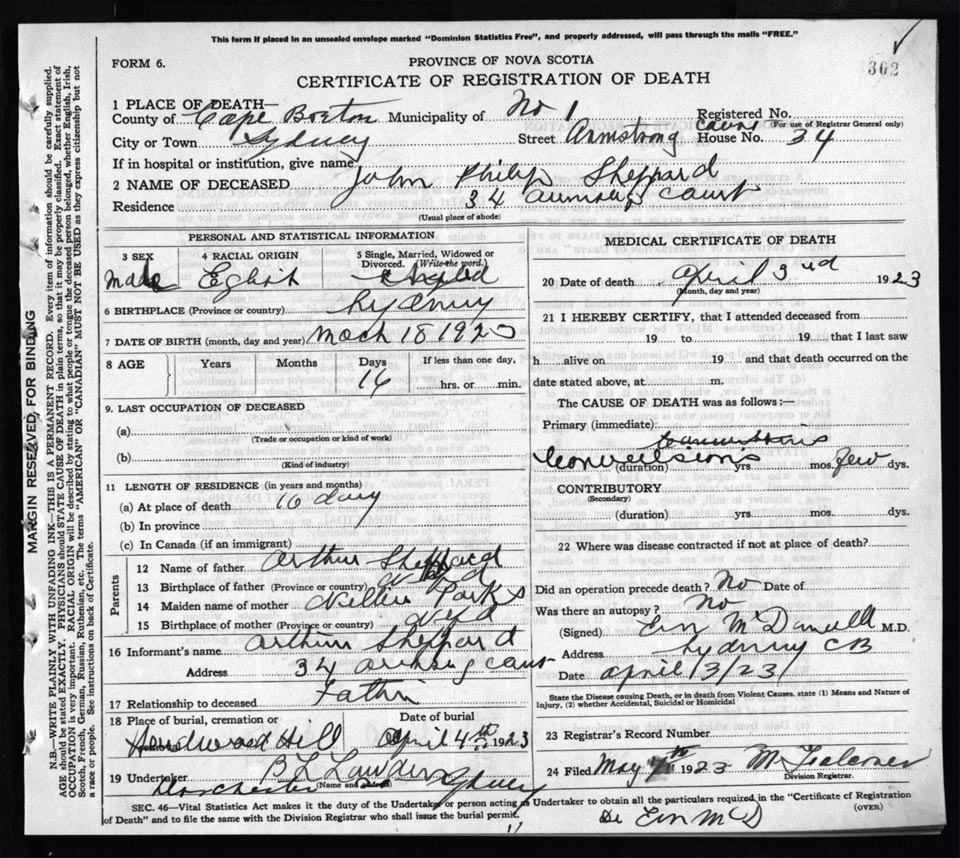 This form if placed in an unsealed envelope marked "Dominion Statistics Free", and properly addressed, will pass through the mails "FREE."
302
FORM 6.
PROVINCE OF NOVA SCOTIA
CERTIFICATE OF REGISTRATION OF DEATH
1 PLACE OF DEATH—
County of Cape Breton Municipality of No 1 Registered No.
(For use of Registrar General only)
City or Town Sydney Street Armstrong Court House No. 34
If in hospital or institution, give name
2 NAME OF DECEASED John Philip Sheppard
Residence 34 Court
(Usual place of abode)
PERSONAL AND STATISTICAL INFORMATION
3 SEX 4 RACIAL ORIGIN 5 Single, Married, Widowed or Divorced. (Write the word.)
Male Eglish
6 BIRTHPLACE (Province or country) Sydney
7 DATE OF BIRTH (month, day and year) Mach 18 1923
8 AGE Years Months Days If less than one day,
16 hrs. or min.
9. LAST OCCUPATION OF DECEASED
(a)
(Trade or occupation or kind of work)
(b)
(Kind of industry)
11 LENGTH OF RESIDENCE (in years and months)
(a) At place of death 16 day
(b) In province
(c) In Canada (if an immigrant)
Parents
12 Name of father Arthur Sheppard
13 Birthplace of father (Province or country) Nfld
14 Maiden name of mother Nellie Parks
15 Birthplace of mother (Province or country) Nfld
16 Informant's name Arthur Sheppard
Address 34 Court
17 Relationship to deceased Father
18 Place of burial, cremation or Date of burial
Hardwood Hill April 4th 1923
19 Undertaker
(Name and address)
Dorchester St Sydney
MEDICAL CERTIFICATE OF DEATH
20 Date of death April 3rd 1923
(Month, day and year)
21 I HEREBY CERTIFY, that I attended deceased from
19 to 19 that I last saw
h alive on 19 and that death occurred on the
date stated above, at m.
The CAUSE OF DEATH was as follows:—
Primary (immediate)
Convulsions
(duration) yrs. mos. few dys.
CONTRIBUTORY
(Secondary)
(duration) yrs. mos. dys.
22 Where was disease contracted if not at place of death?
Did an operation precede death? No Date of
Was there an autopsy? No
(Signed) M.D.
Address Sydney CB
Date April /3/23
State the Disease causing Death, or in death from Violent Causes, state (1) Means and Nature of Injury, (2) whether Accidental, Suicidal or Homicidal
23 Registrar's Record Number
24 Filed May 7th 1923 Falconer
Division Registrar.
SEC. 46—Vital Statistics Act makes it the duty of the Undertaker or person acting as Undertaker to obtain all the particulars required in the "Certificate of Registration
of Death" and to file the same with the Division Registrar who shall issue the burial permit.
(OVER)
MARGIN RESERVED FOR BINDING
N.B.—WRITE PLAINLY WITH UNFADING INK—THIS IS A PERMANENT RECORD. Every item of information should be carefully supplied.
AGE should be stated EXACTLY. PHYSICIANS should STATE CAUSE OF DEATH in plain terms, so that it may be properly classified. Exact statement of
OCCUPATION is very important. RACIAL ORIGIN will be described by stating to what people or tongue the deceased person belonged, whether English, Irish,
Scotch, French, German, Russian, Ruthenian, etc. The terms "AMERICAN" OR "CANADIAN" MUST NOT BE USED as they express citizenship but not
a race or people. See instructions on back of Certificate.